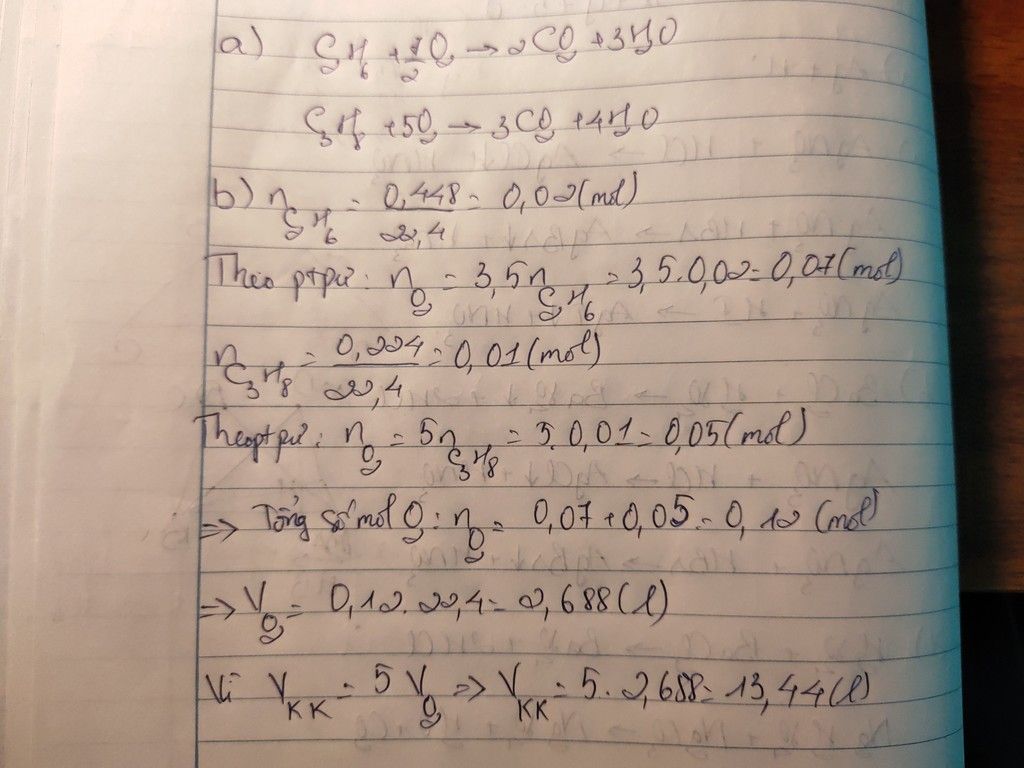 a) C₂H₆ + 7/2 O₂ → 2CO₂ + 3H₂O
C₃H₈ + 5O₂ → 3CO₂ + 4H₂O
b) n C₂H₆ = 0,448/22,4 = 0,02 (mol)
Theo ptpư: n O₂ = 3,5n C₂H₆ = 3,5.0,02 = 0,07 (mol)
n C₃H₈ = 0,224/22,4 = 0,01 (mol)
Theo ptpư: n O₂ = 5n C₃H₈ = 5.0,01 = 0,05 (mol)
=> Tổng số mol O₂: n O₂ = 0,07 + 0,05 = 0,12 (mol)
=> V O₂ = 0,12.22,4 = 2,688 (l)
Vì V KK = 5 V O₂ => V KK = 5.2,688 = 13,44 (l)